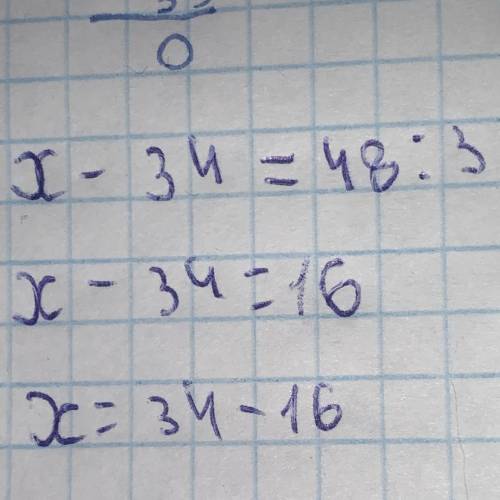 0
x - 34 = 48 : 3
x - 34 = 16
x = 34 - 16